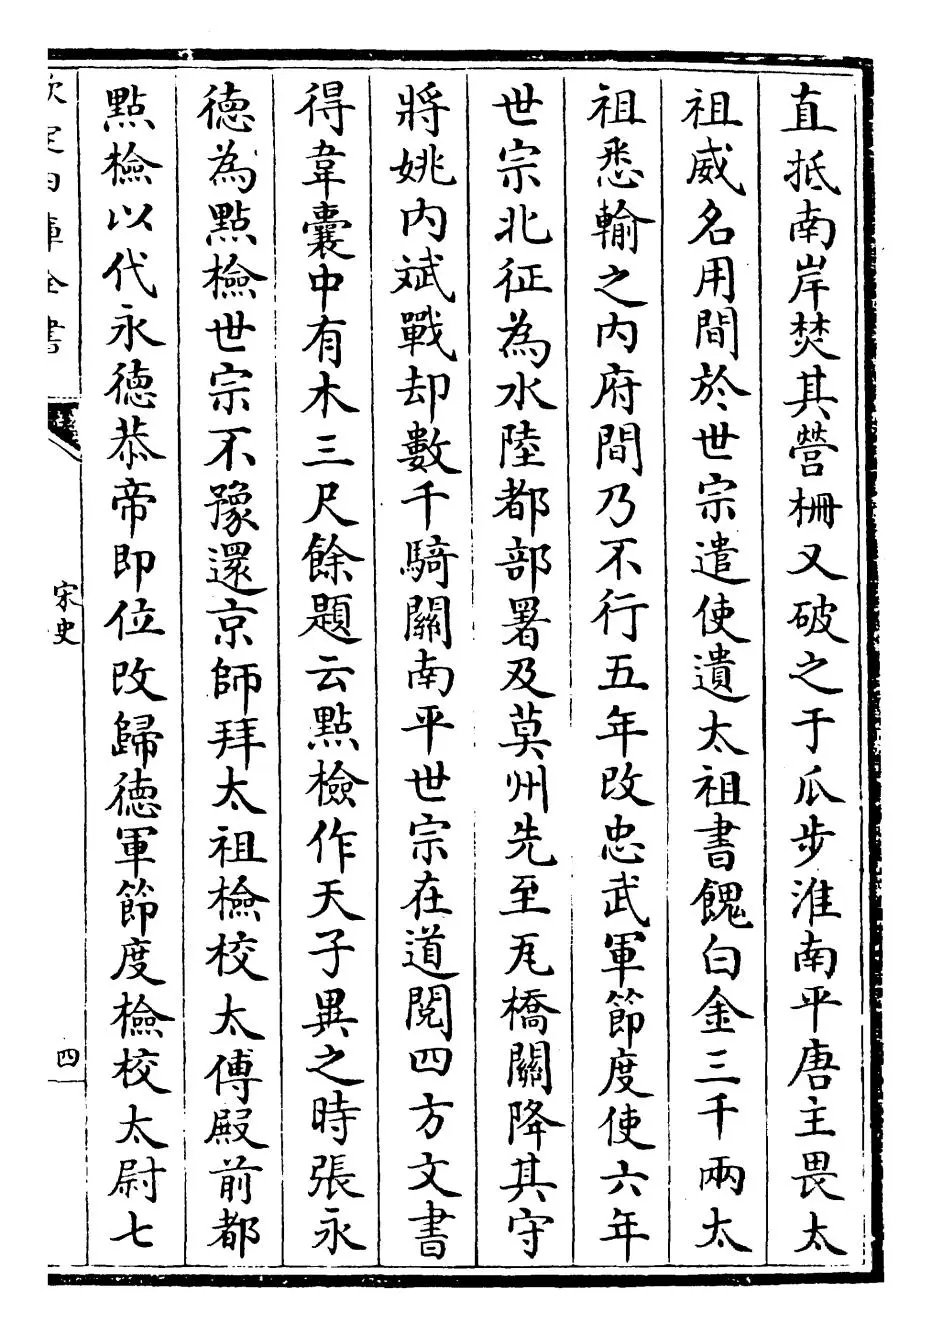 直抵南岸焚其營柵又破之于瓜步淮南平唐主畏太
祖威名用間於世宗遣使遺太祖書餽白金三千兩太
祖悉輸之内府間乃不行五年改忠武軍節度使六年
世宗北征為水陸都部署及莫州先至瓦橋關降其守
將姚内斌戰却數千騎關南平世宗在道閱四方文書
得韋囊中有木三尺餘題云點檢作天子異之時張永
德為點檢世宗不豫還京師拜太祖檢校太傅殿前都
點檢以代永德恭帝即位改歸德軍節度檢校太尉七
欽定四庫全書
宋史
四